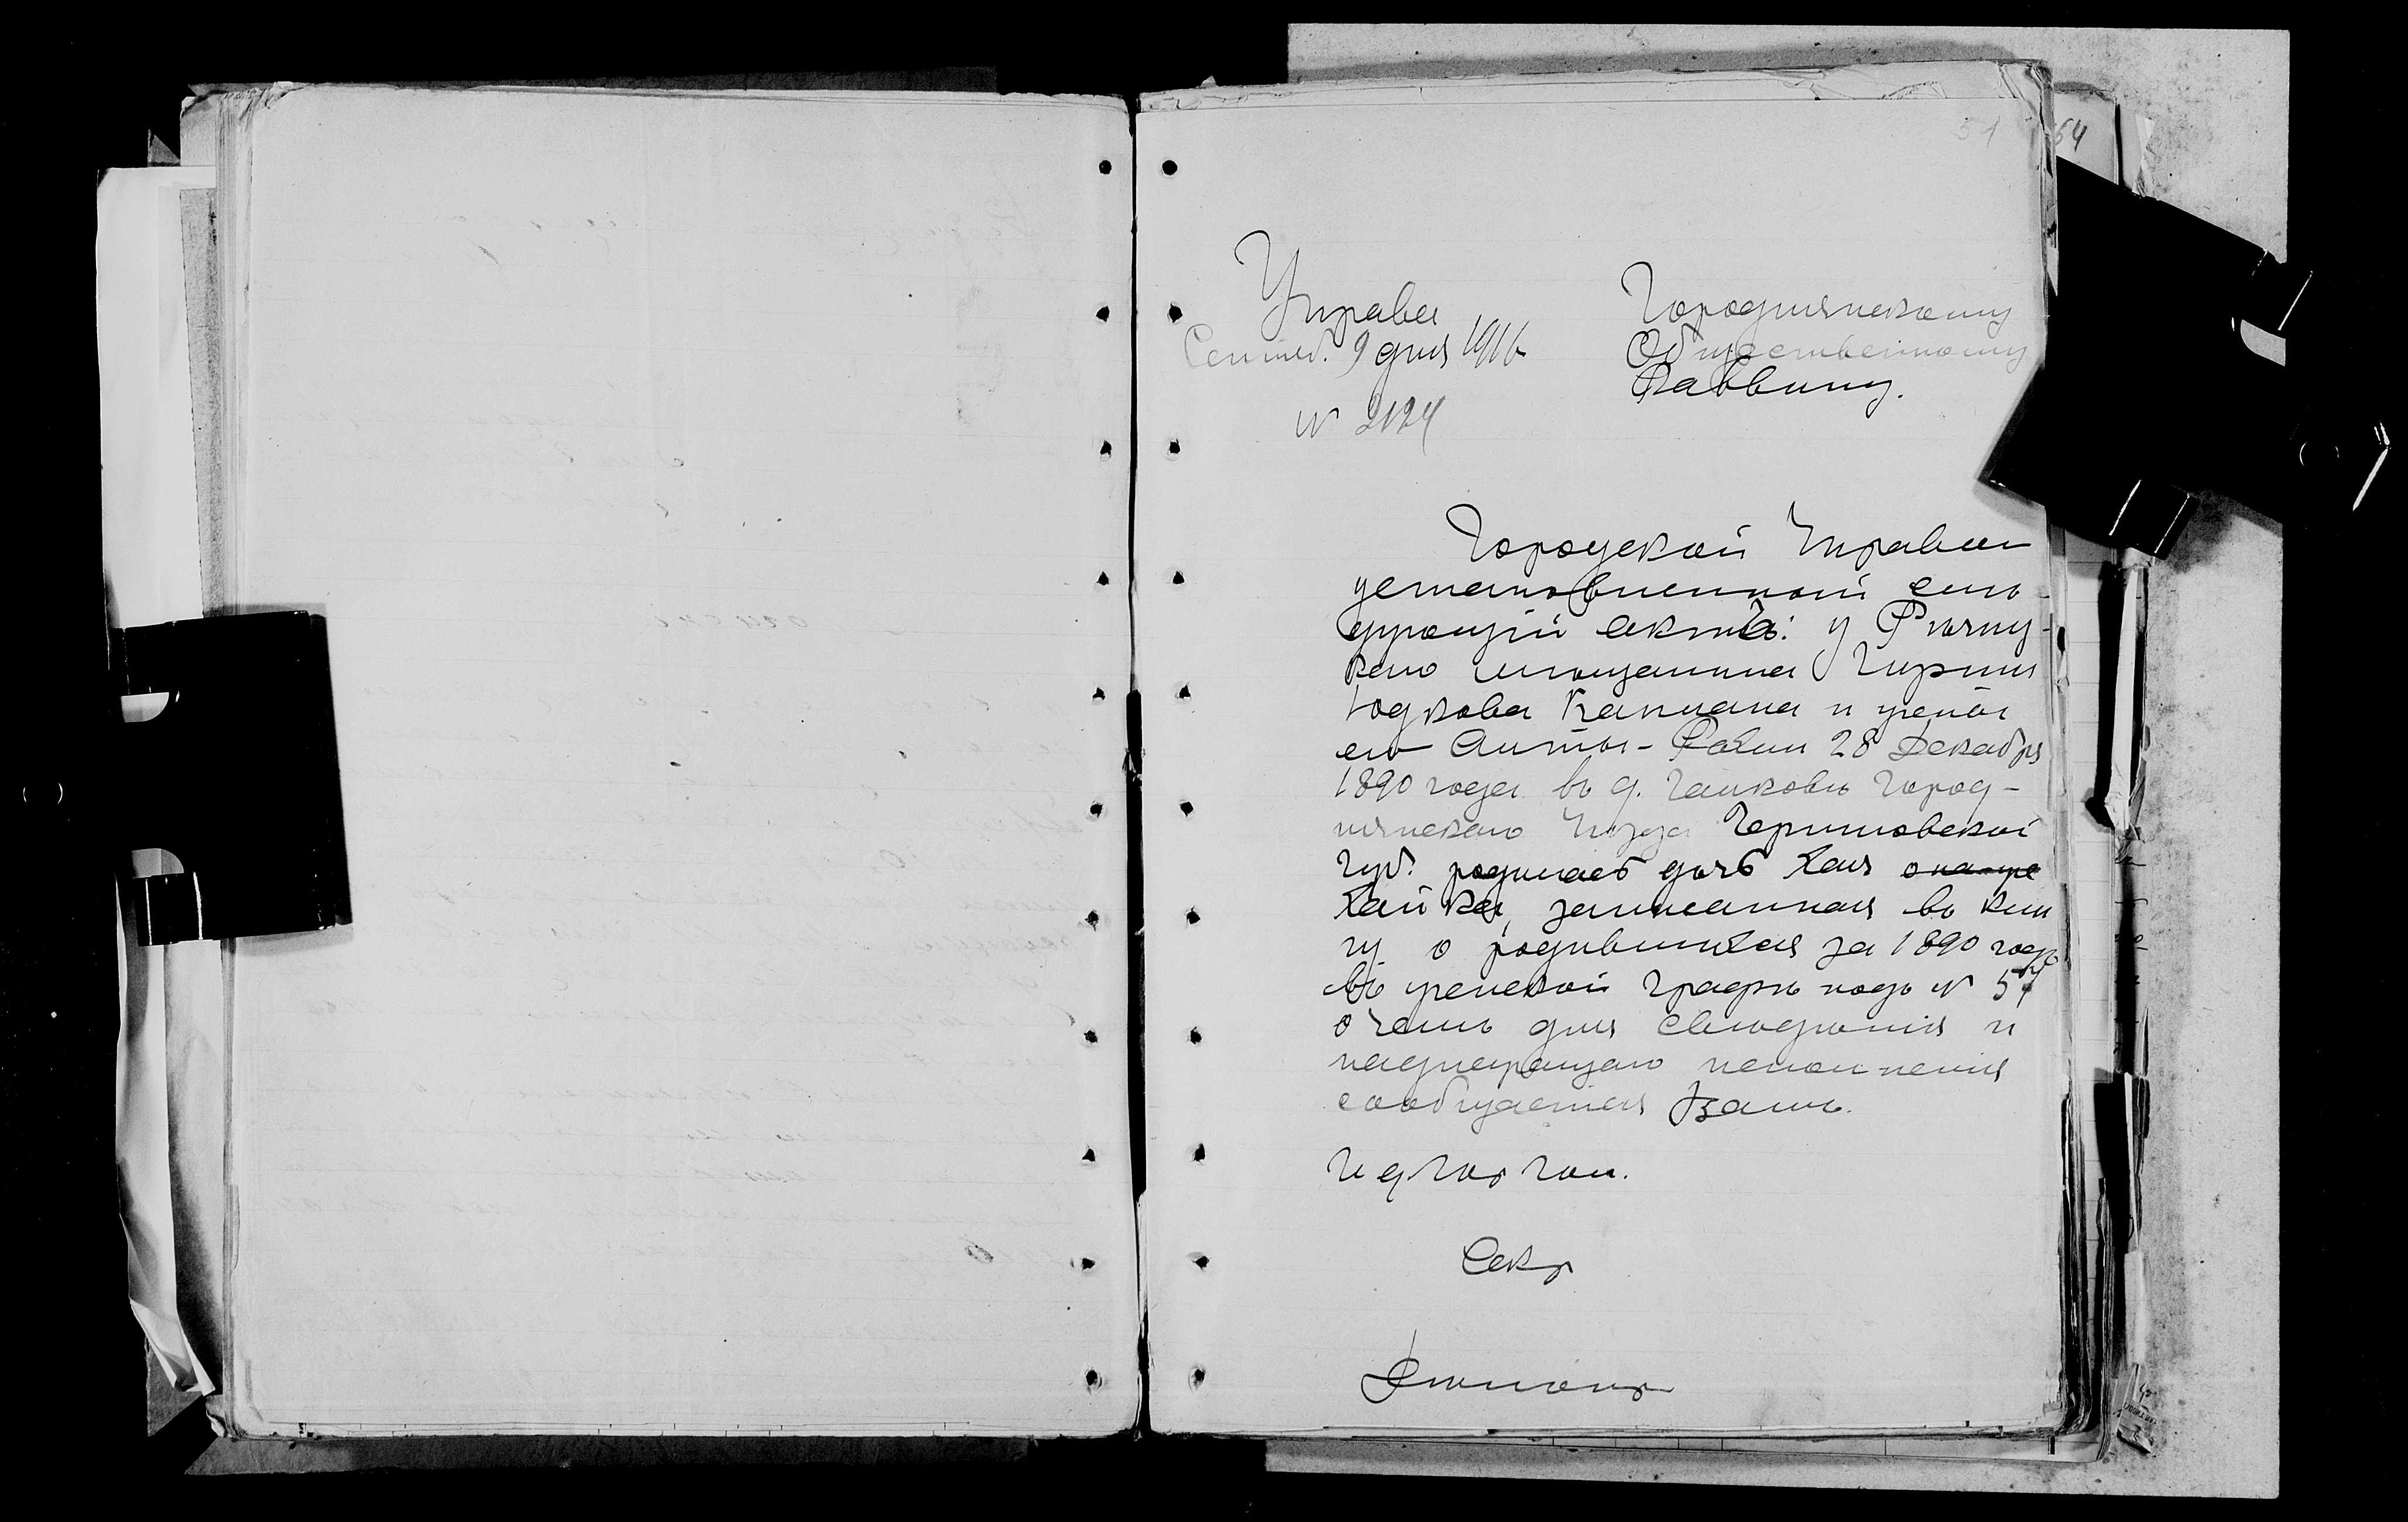 51
54
Управа
Сентяб. 9 дня 1916
№ 2124
Городнянскому
Общественному
Раввину.
Городской Управой
установленной слѣ-
дующій актъ: у Рѣчиц-
каго мѣщанина Гирши
Юдкова Каплана и жены
его Аиты-Рабин 28 Декабря
1890 года въ д. Ганковъ Город-
нянскаго Уѣзда Черниговской
губ. родилась дочь Хая она-же
Хайка, записанная въ кни
гу о родившихся за 1890 годъ
въ женской графѣ подъ № 57
о чемъ для свѣдѣнія и
надлежащаго исполненія
сообщается Вамъ.
И д. Гор Гол.
Секр